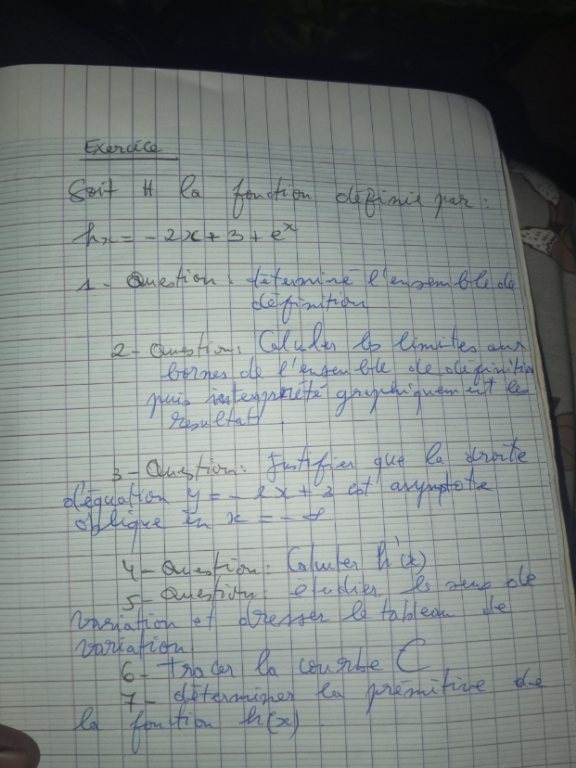 Exercice
Soit H la fonction définie par :
hx = - 2x + 3 + eˣ
1 - Question : déterminé l'ensemble de
définition
2 - Question : Calculer les limites aux
bornes de l'ensemble de définitio
puis interprété graphiquement le
resultat.
3 - Question : Justifier que la droite
d'équation y = - 2x + 3 est asymptote
oblique en x = - ∞
4 - Question : Calculer h'(x)
5 - Question : étudier le sens de
variation et dresser le tableau de
variation
6 - Tracer la courbe C
7 - déterminer la prémitive de
la fonction h(x)